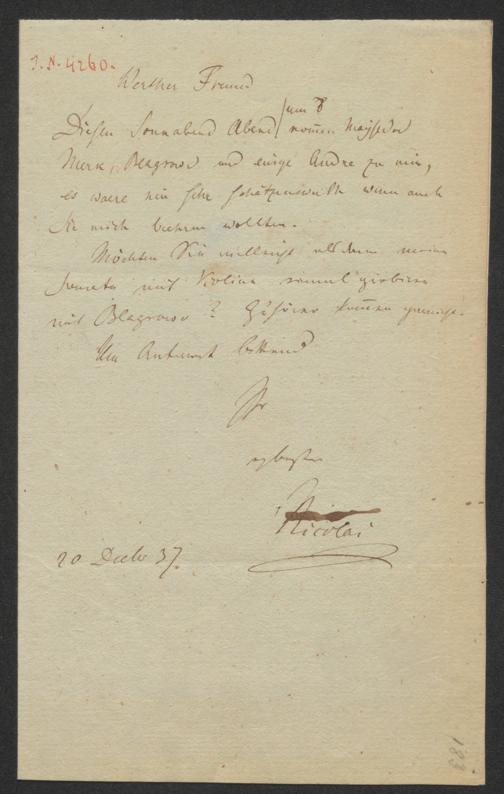 I.N. 4260.
Werther Freund
Diesen Sonnabend Abend um 8 kom̄en Mayseder
Merk, Blagrove und einige Andre zu mir,
es waere mir sehr schätzenswerth wenn auch
Sie mich beehren wollten.
Möchten Sie vielleicht alsdann meine
Sonate mit Violine einmal probiren
mit Blagrove? Zuhörer kom̄en
Um Antwort bittend
Ihr
ergebenster
Nicolai
20 Decbr 37.
183